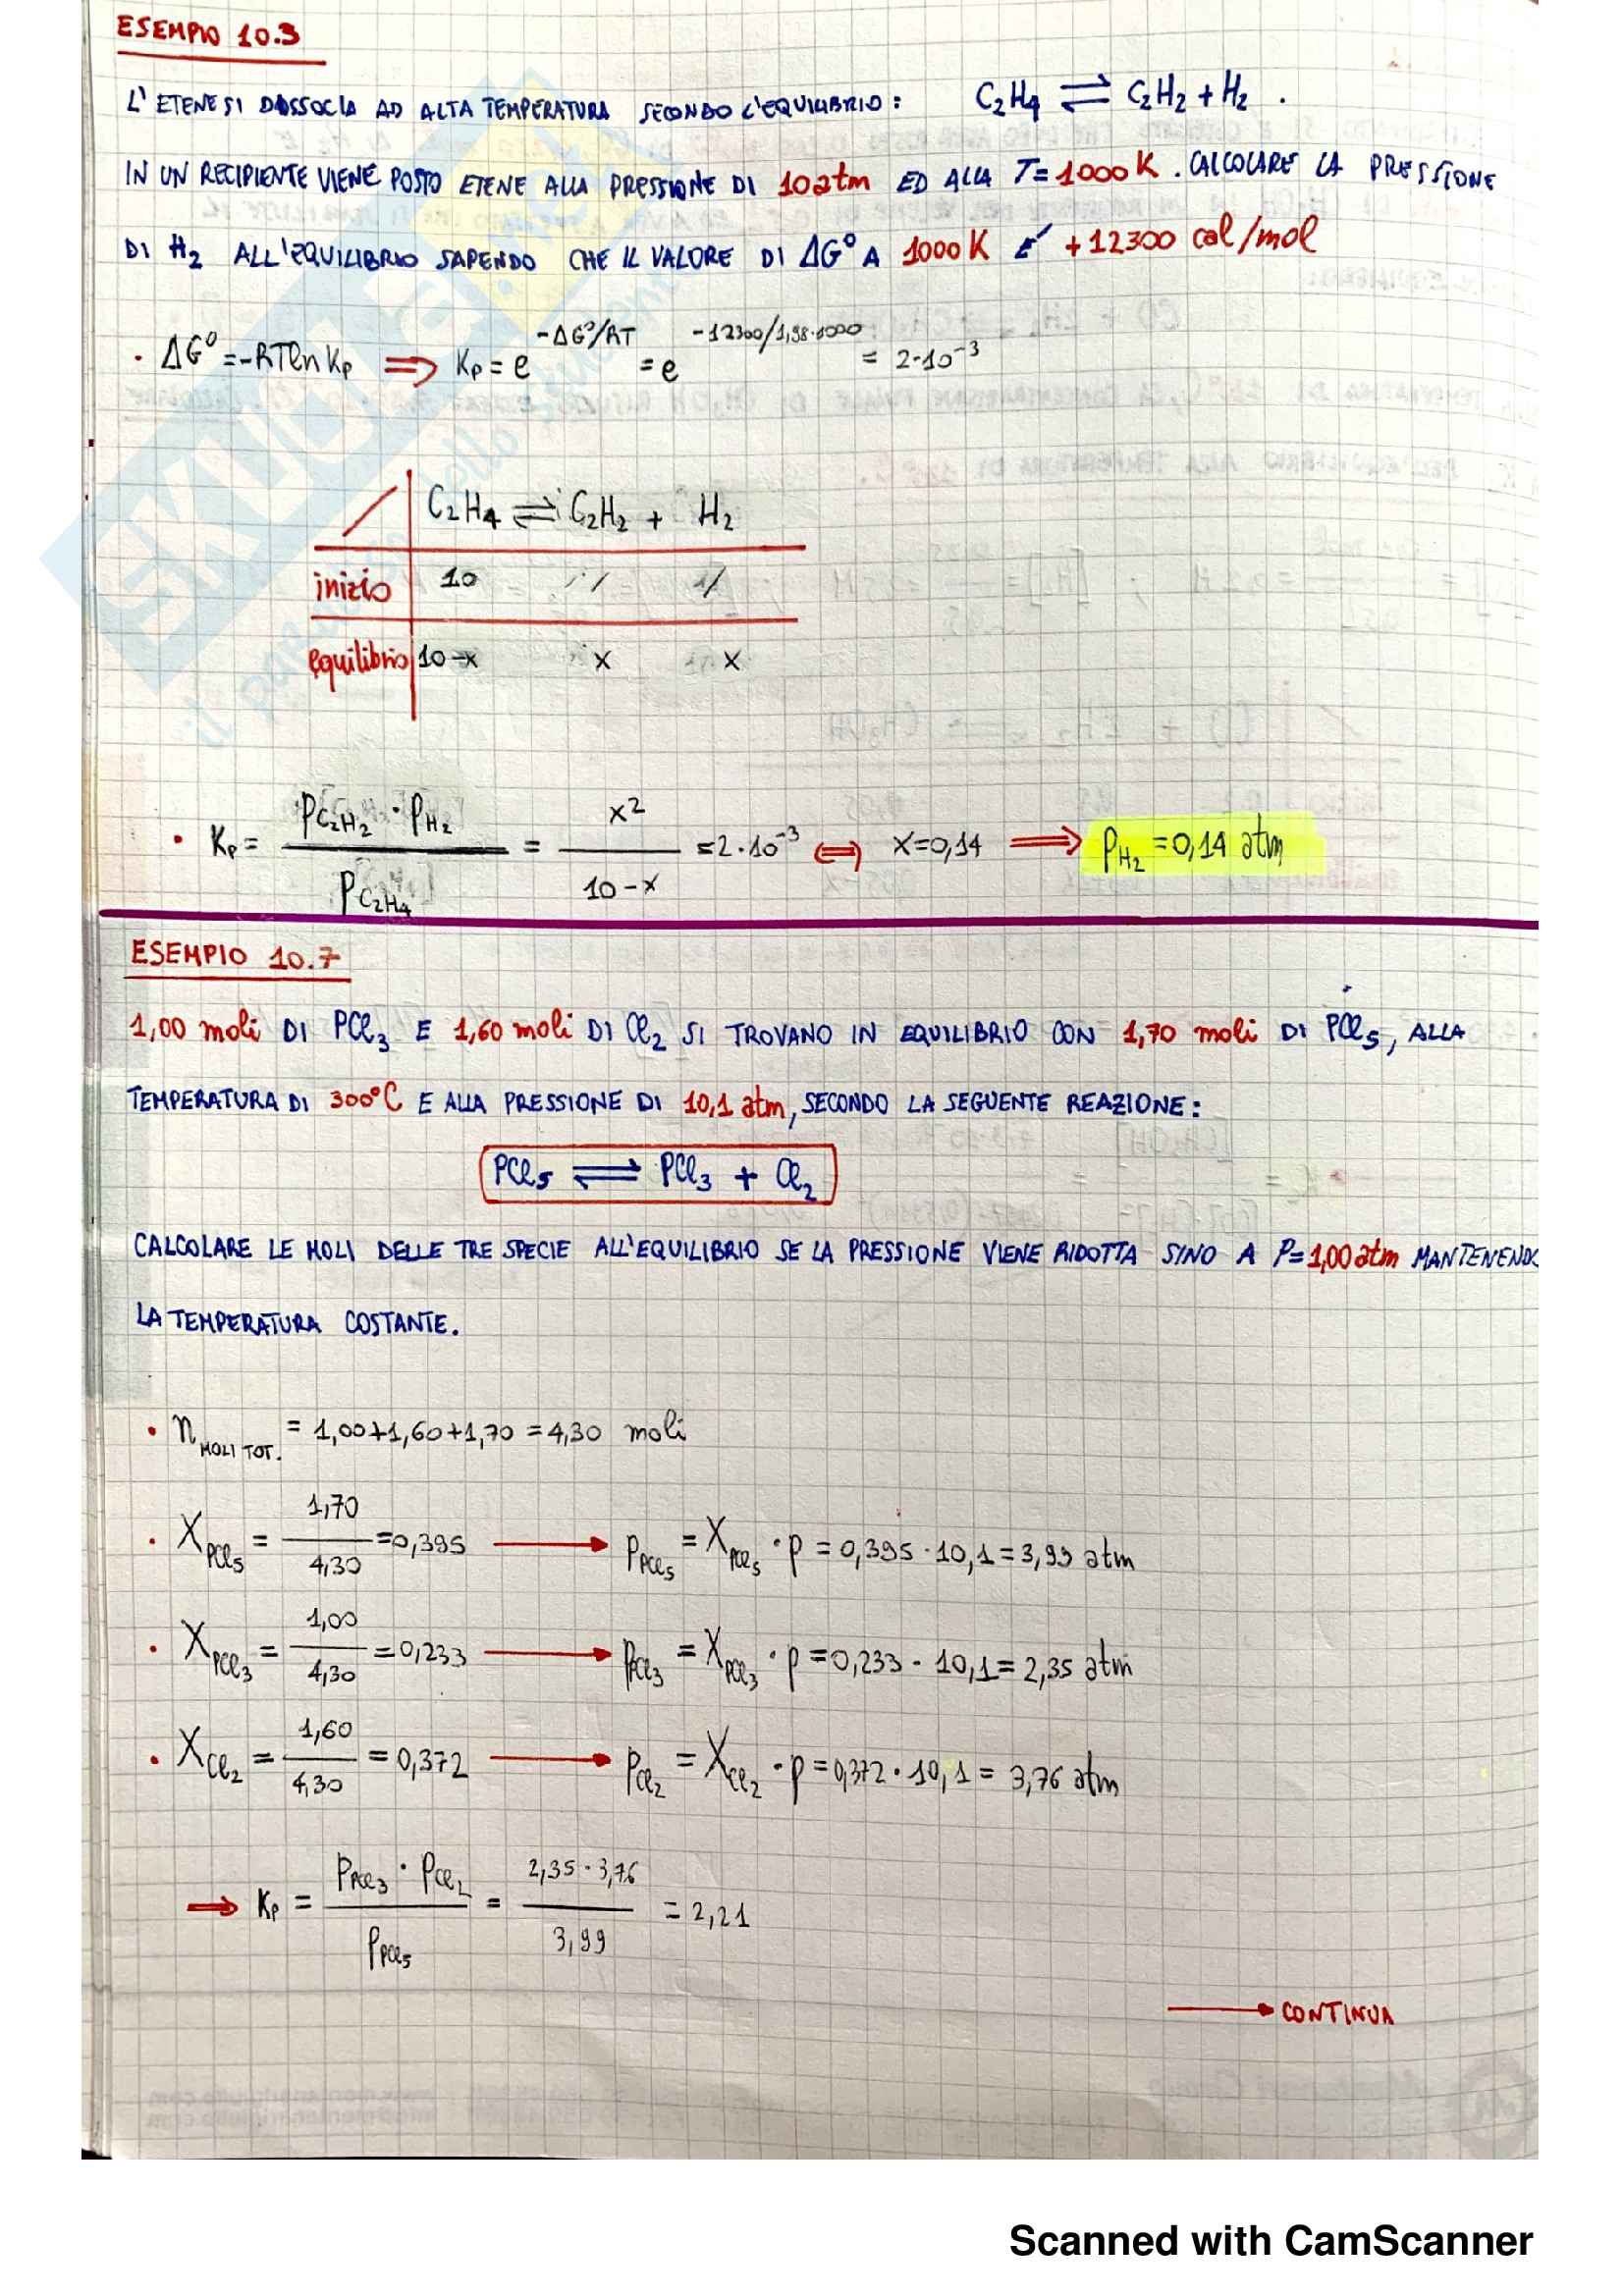 ESEMPIO 10.3
L'ETENE SI DISSOCIA AD ALTA TEMPERATURA SECONDO L'EQUILIBRIO: C₂H₄ ⇌ C₂H₂ + H₂ .
IN UN RECIPIENTE VIENE POSTO ETENE ALLA PRESSIONE DI 10 atm ED ALLA T= 1000 K . CALCOLARE LA PRESSIONE
DI H₂ ALL'EQUILIBRIO SAPENDO CHE IL VALORE DI ΔG° A 1000 K E' +12300 cal/mol
· ΔG° = -RTlnKp ⇒ Kp = e^(-ΔG°/RT) = e^(-12300/1,98·1000) = 2·10⁻³
C₂H₄ ⇌ C₂H₂ + H₂
inizio 10 // //
equilibrio 10-x x x
· Kp = (pC₂H₂ · pH₂) / pC₂H₄ = x² / (10-x) = 2·10⁻³ ⇔ x=0,14 ⇒ pH₂ = 0,14 atm
ESEMPIO 10.7
1,00 moli DI PCl₃ E 1,60 moli DI Cl₂ SI TROVANO IN EQUILIBRIO CON 1,70 moli DI PCl₅, ALLA
TEMPERATURA DI 300°C E ALLA PRESSIONE DI 10,1 atm, SECONDO LA SEGUENTE REAZIONE:
PCl₅ ⇌ PCl₃ + Cl₂
CALCOLARE LE MOLI DELLE TRE SPECIE ALL'EQUILIBRIO SE LA PRESSIONE VIENE RIDOTTA SINO A P= 1,00 atm MANTENENDO
LA TEMPERATURA COSTANTE.
· n MOLI TOT. = 1,00+1,60+1,70 = 4,30 moli
· XPCl₅ = 1,70 / 4,30 = 0,395 → pPCl₅ = XPCl₅ · p = 0,395 · 10,1 = 3,99 atm
· XPCl₃ = 1,00 / 4,30 = 0,233 → pPCl₃ = XPCl₃ · p = 0,233 · 10,1 = 2,35 atm
· XCl₂ = 1,60 / 4,30 = 0,372 → pCl₂ = XCl₂ · p = 0,372 · 10,1 = 3,76 atm
⇒ Kp = (pPCl₃ · pCl₂) / pPCl₅ = (2,35 · 3,76) / 3,99 = 2,21
→ CONTINUA
Scanned with CamScanner